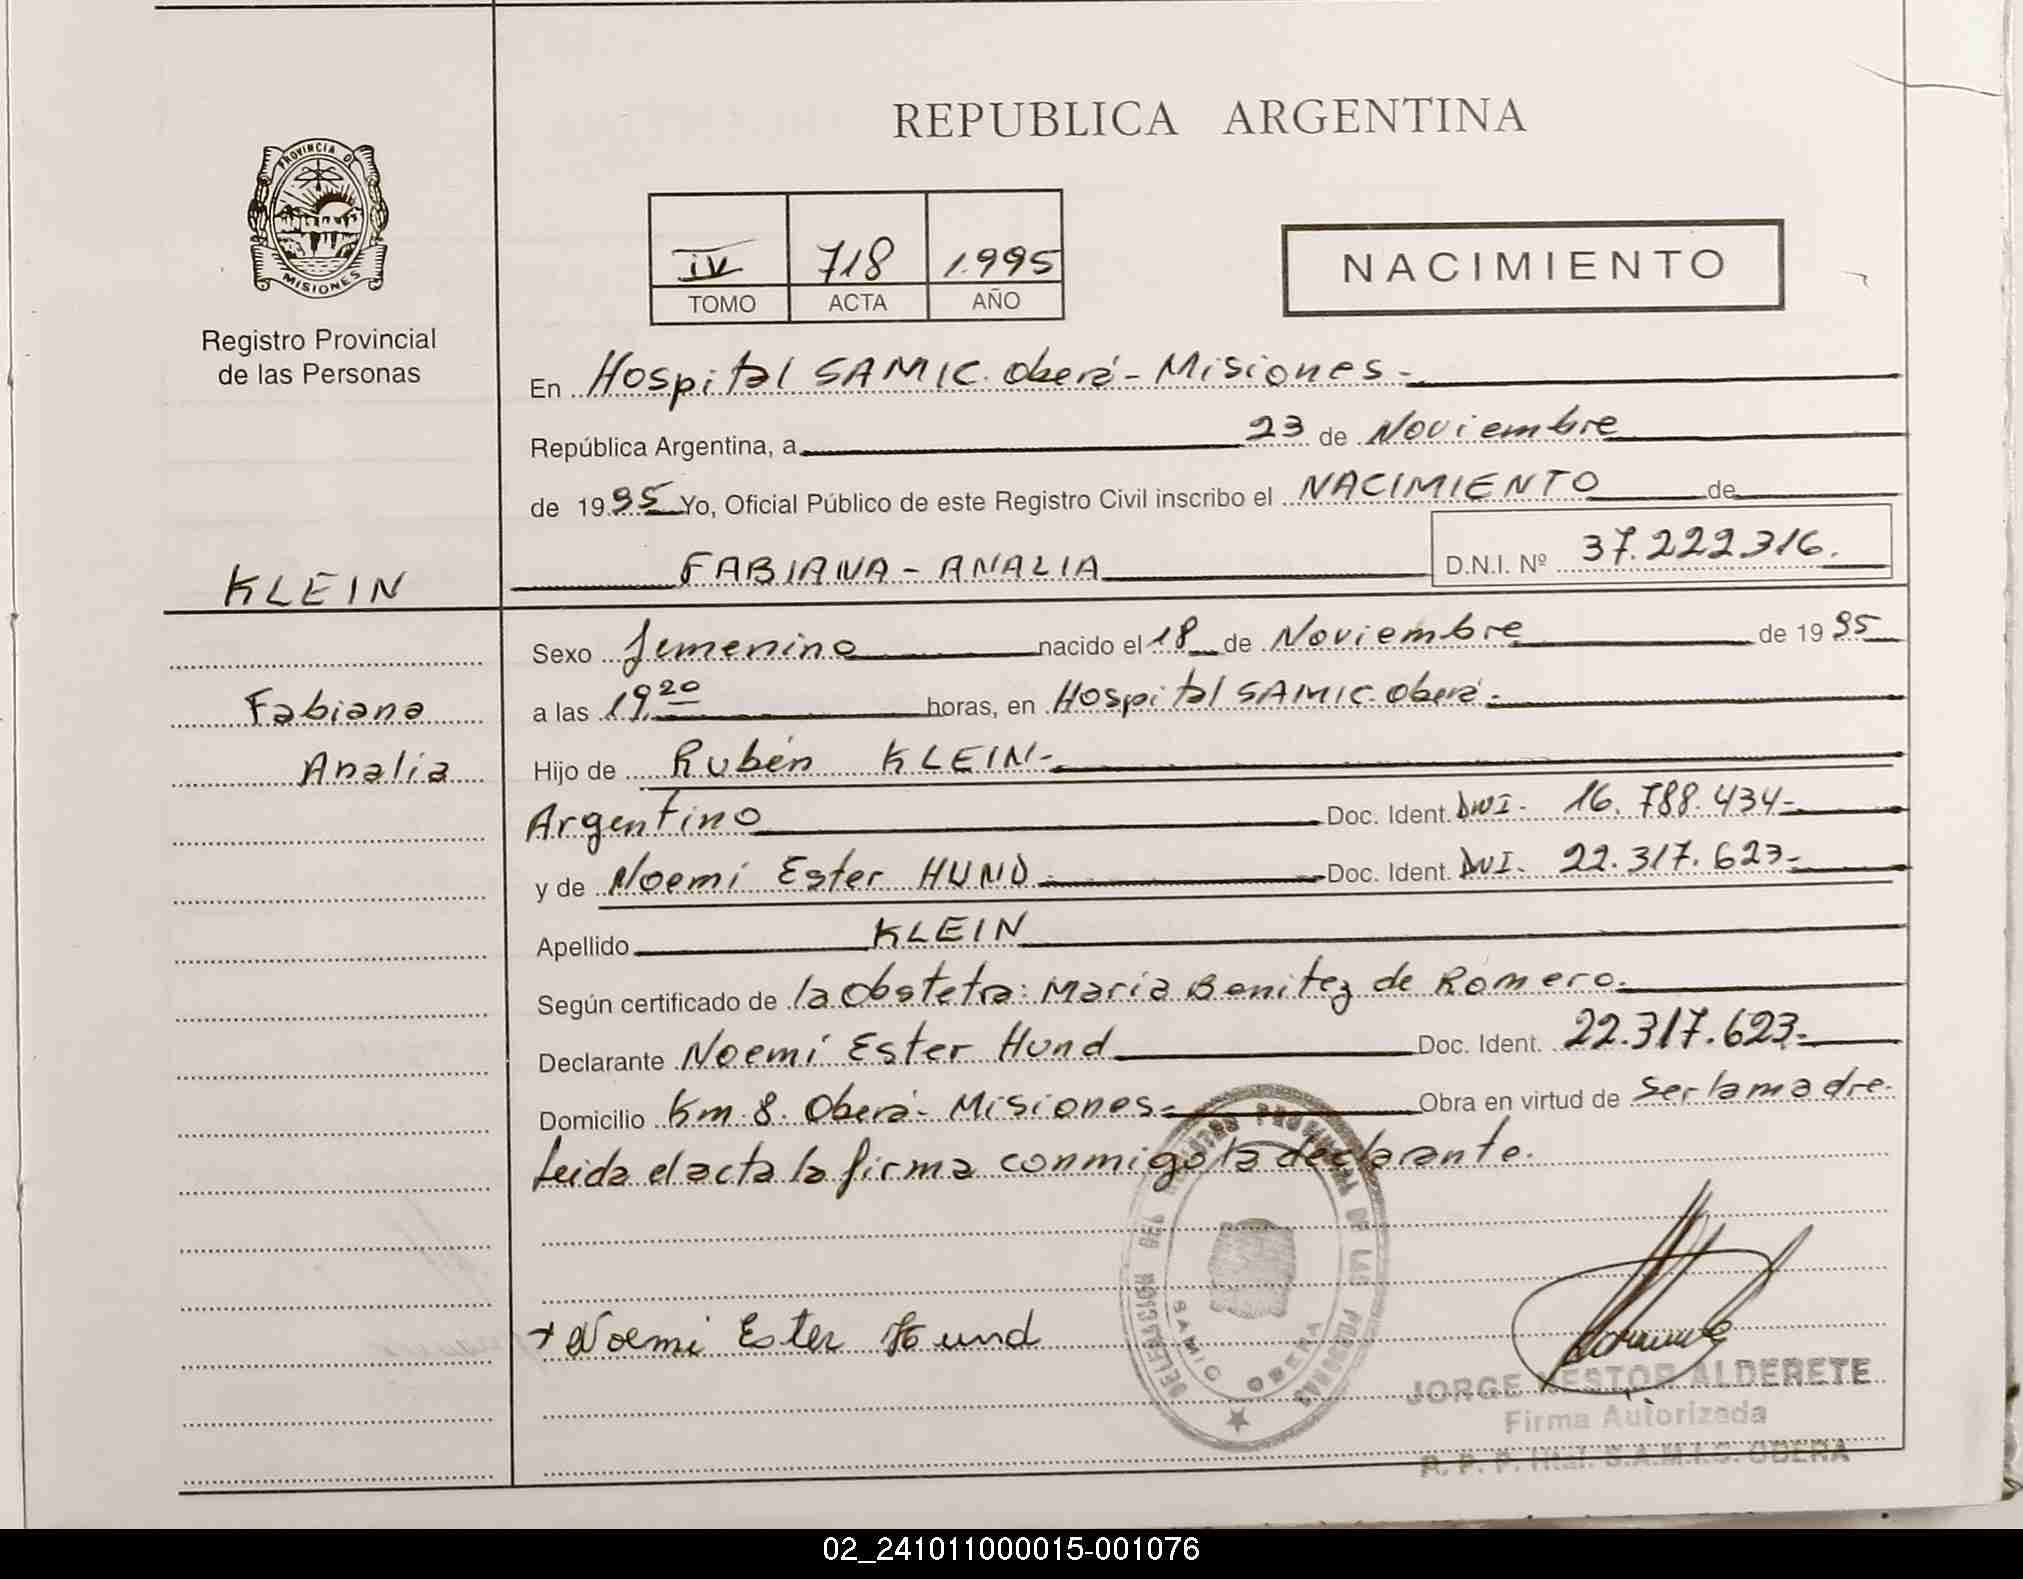 REPUBLICA ARGENTINA
PROVINCIA DE
MISIONES
Registro Provincial
de las Personas
IV 718 1.995
TOMO ACTA AÑO
NACIMIENTO
En Hospital SAMIC. Oberá - Misiones.-
República Argentina, a 23 de Noviembre
de 1995 Yo, Oficial Público de este Registro Civil inscribo el NACIMIENTO de
FABIANA - ANALIA D.N.I. Nº 37.222.316.
KLEIN
Fabiana
Analia
Sexo femenino nacido el 18 de Noviembre de 1995
a las 19,20 horas, en Hospital SAMIC. Oberá.-
Hijo de Rubén KLEIN.-
Argentino Doc. Ident. DNI. 16.788.434-
y de Noemí Ester HUND Doc. Ident. DNI. 22.317.623-
Apellido KLEIN
Según certificado de la Obstetra: María Benitez de Romero.
Declarante Noemí Ester Hund Doc. Ident. 22.317.623-
Domicilio Km. 8. Oberá - Misiones.- Obra en virtud de ser la madre.
Leida el acta la firma conmigo la declarante.
DELEGACION DEL REGISTRO PROVINCIAL DE LAS PERSONAS
SAMIC OBERA
+ Noemi Ester Hund
JORGE NESTOR ALDERETE
Firma Autorizada
R. P. P. Htal. S.A.M.I.C. OBERA
02_241011000015-001076